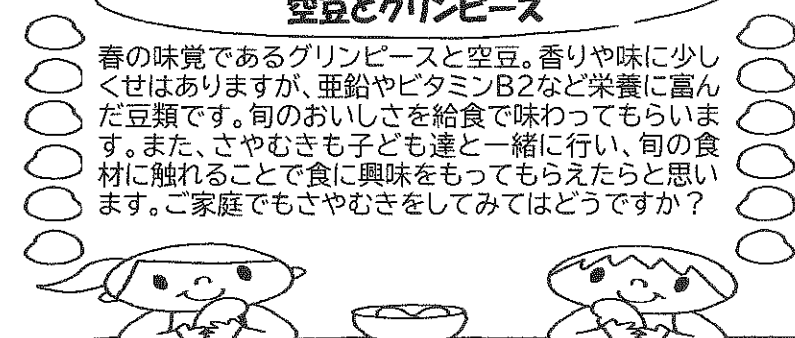 空豆とグリンピース
春の味覚であるグリンピースと空豆。香りや味に少し
くせはありますが、亜鉛やビタミンB2など栄養に富ん
だ豆類です。旬のおいしさを給食で味わってもらいま
す。また、さやむきも子ども達と一緒に行い、旬の食
材に触れることで食に興味をもってもらえたらと思い
ます。ご家庭でもさやむきをしてみてはどうですか？